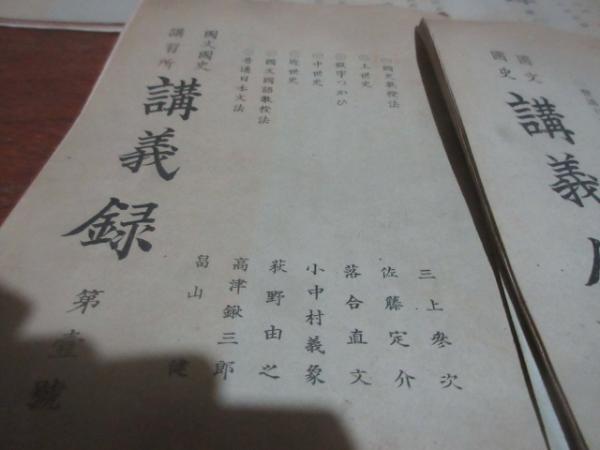 國史教授法
上世史
假字つかひ
中世史
近世史
國文國語教授法
普通日本文法
三上參次
佐藤定介
落合直文
小中村義象
萩野由之
高津鍬三郎
畠山健
國文國史
講習所
講義録
第壹號
國文
國史
講義